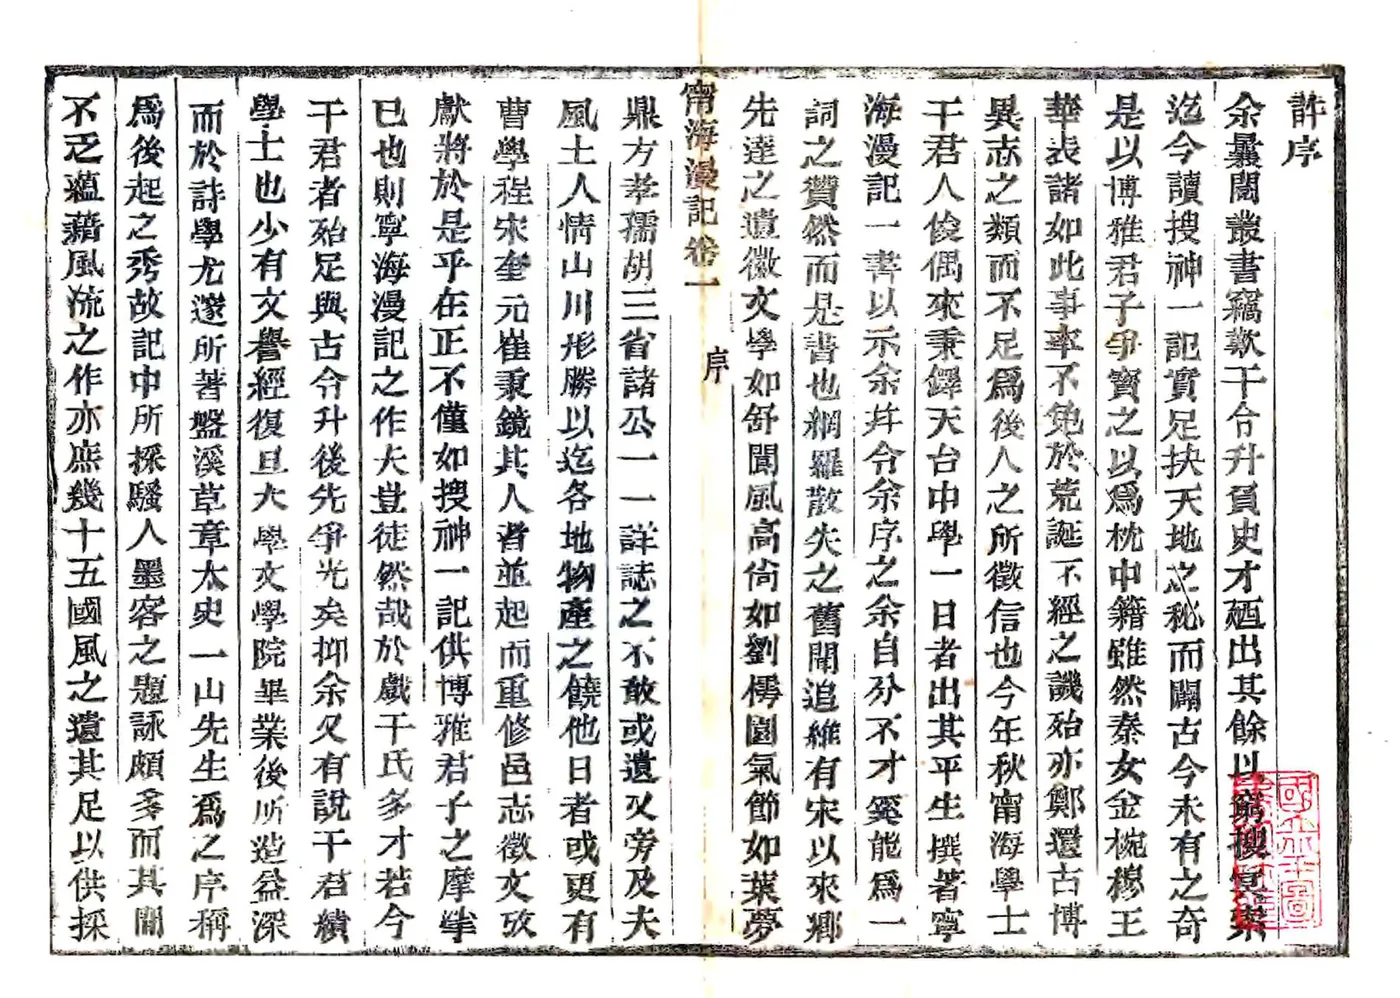 許序
余曩閱叢書竊歎干令升負史才廼出其餘以窮搜冥索
迄今讀搜神一記實足抉天地之秘而闢古今未有之奇
是以博雅君子爭寶之以爲枕中籍雖然秦女金椀穆王
華表諸如此事率不免於荒誕不經之譏殆亦鄭還古博
異志之類而不足爲後人之所徵信也今年秋甯海學士
干君人俊偶來秉鐸天台中學一日者出其平生撰著寧
海漫記一書以示余幷令余序之余自分不才奚能爲一
詞之贊然而是書也網羅散失之舊聞追維有宋以來鄉
先達之遺徽文學如舒閬風高尙如劉樗園氣節如葉夢
甯海漫記卷一
序
鼎方孝孺胡三省諸公一一詳誌之不敢或遺又旁及夫
風土人情山川形勝以迄各地物產之饒他日者或更有
曹學程宋奎元崔秉鏡其人者並起而重修邑志徵文攷
獻將於是乎在正不僅如搜神一記供博雅君子之摩挲
已也則寧海漫記之作夫豈徒然哉於戲干氏多才若今
干君者殆足與古令升後先爭光矣抑余又有說干君績
學士也少有文譽經復旦大學文學院畢業後所造益深
而於詩學尤邃所著盤溪草章太史一山先生爲之序稱
爲後起之秀故記中所採騷人墨客之題詠頗多而其間
不乏蘊藉風流之作亦庶幾十五國風之遺其足以供採